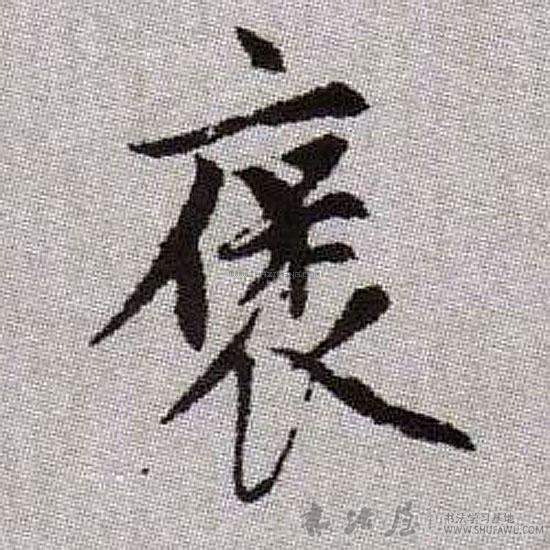 褒
书法屋
书法学习基地
WWW.SHUFAWU.COM